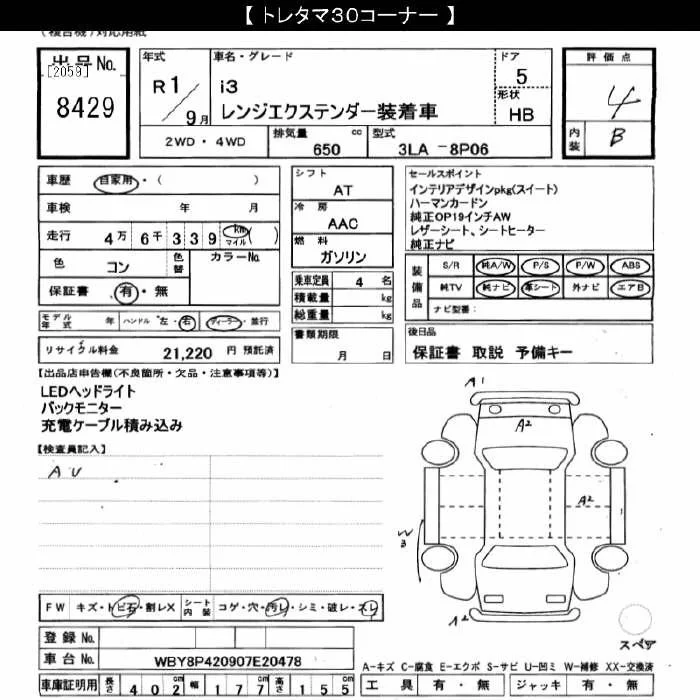 【 トレタマ30コーナー 】
(複合機)対応用紙
出品No.
[2059]
8429
年式
R 1 / 9 月
車名・グレード
i3
レンジエクステンダー装着車
ドア
5
形状
HB
評価点
4
内装
B
2WD・4WD
排気量 650 cc
型式 3LA -8P06
車歴 自家用・( )
車検 年 月
走行 4万 6千 339 km マイル ( )
色 コン 色替
カラーNo.
保証書 有・無
モデル年式 年 ハンドル 左・右 ディーラー・並行
リサイクル料金 21,220 円 預託済
シフト
AT
冷房
AAC
燃料
ガソリン
乗車定員 4 名
積載量 kg
総重量 kg
書類期限
月 日
セールスポイント
インテリアデザインpkg(スイート)
ハーマンカードン
純正OP19インチAW
レザーシート、シートヒーター
純正ナビ
装備品
S/R 純A/W P/S P/W ABS
純TV 純ナビ 革シート 外ナビ エアB
ナビ型番:
後日品
保証書 取説 予備キー
【出品店申告欄(不良箇所・欠品・注意事項等)】
LEDヘッドライト
バックモニター
充電ケーブル積み込み
【検査員記入】
A U
A1
A2
A2
W3
A2
スペア
FW キズ・トビ石・割レX シート内装 コゲ・穴・汚レ・シミ・破レ・スレ
登録 No.
車台 No. WBY8P420907E20478
車庫証明用 長さ 402 cm 幅 177 cm 高さ 155 cm
A-キズ C-腐食 E-エクボ S-サビ U-凹ミ W-補修 XX-交換済
工具 有・無 ジャッキ 有・無